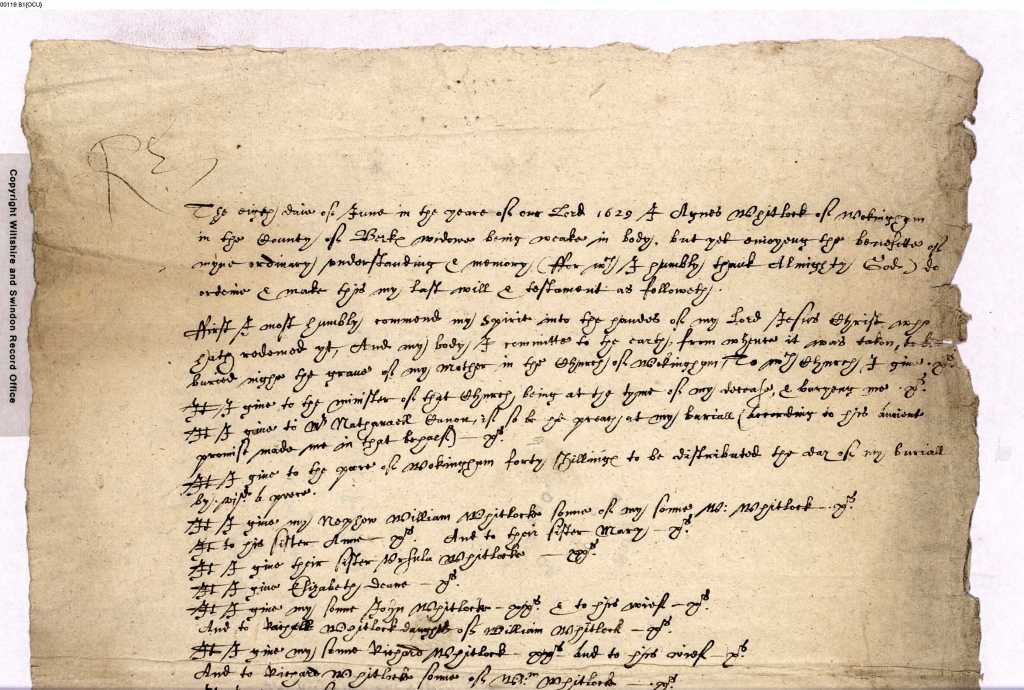 00119 B1(OCU)
Copyright Wiltshire and Swindon Record Office
RE
The eigth daie of June in the yeare of our Lord 1629 I Agnes Whitlock of Wokingham
in the County of Berk widowe being weake in body, but yet enioyeng the benefitte of
myne ordinary understanding & memory (ffor wch I humbly thank Almighty God) do
ordeine & make this my last will & testament as followeth.
ffirst I most humbly commend my Spirit into the handes of my Lord Jesus Christ, who
hath redemed yt, And my body I committe to the earth, from whence it was taken, to be
buried nighe the grave of my Mother in the Church of Wokingham, To wch Church I give xs.
It I give to the minister of that Church, being at the tyme of my decease, & buryeng me xs.
It I give to Mr Nathanaell Canon, if so be he preach at my buriall (according to his ancient
promise made me in that behalf) — xs.
It I give to the poore of Wokingham forty shillings to be distributed the day of my buriall
by a peece.
It I give my Nephew William Whitlocke sonne of my sonne W: Whitlock — xs.
It to his sister Anne — xs. And to their sister Mary — xs.
It I give their sister Ursula Whitlocke —
It I give Elizabeth deane — xs.
It I give my sonne John Whitlocke — & to his wief — xs.
And to Rachell Whitlock daughter of William Whitlock — xs.
It I give my sonne Richard Whitlock and to his wief — xs.
And to Richard Whitlock sonne of Wm Whitlocke — xs.